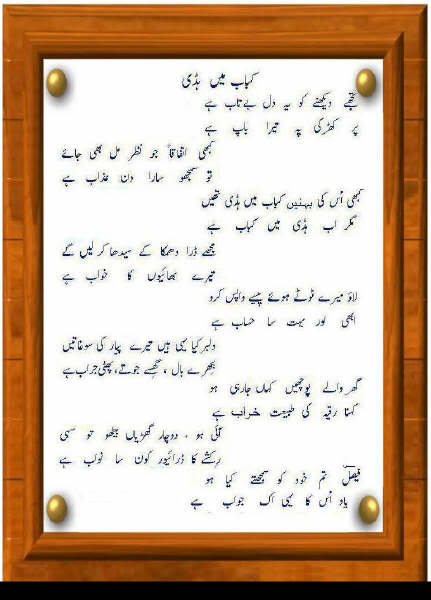 کباب میں ہڈی
تجھے دیکھنے کو یہ دل بے تاب ہے
پر کھڑکی پہ تیرا باپ ہے
کبھی اتفاقاً جو نظر مل بھی جائے
تو سمجھو سارا دن عذاب ہے
کبھی اُس کی بہنیں کباب میں ہڈی تھیں
مگر اب ہڈی میں کباب ہے
مجھے ڈرا دھمکا کے سیدھا کر لیں گے
تیرے بھائیوں کا خواب ہے
لاؤ میرے لوٹے ہوئے پیسے واپس کرو
ابھی اور بہت سا حساب ہے
دلبر کیا یہی ہیں تیرے پیار کی سوغاتیں
بکھرے بال ، گھسے جوتے، پھٹی جراب ہے
گھر والے پوچھیں کہاں جا رہی ہو
کہنا رقیہ کی طبیعت خراب ہے
آئی ہو ، دوچار گھڑیاں بیٹھو تو سہی
رکشے کا ڈرائیور کون سا نواب ہے
فیصل تم خود کو سمجھتے کیا ہو
یاد اُس کا یہی اک جواب ہے